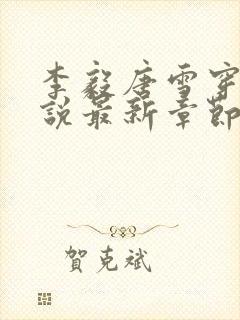 李毅唐雪穿
說最新章節
賀克斌